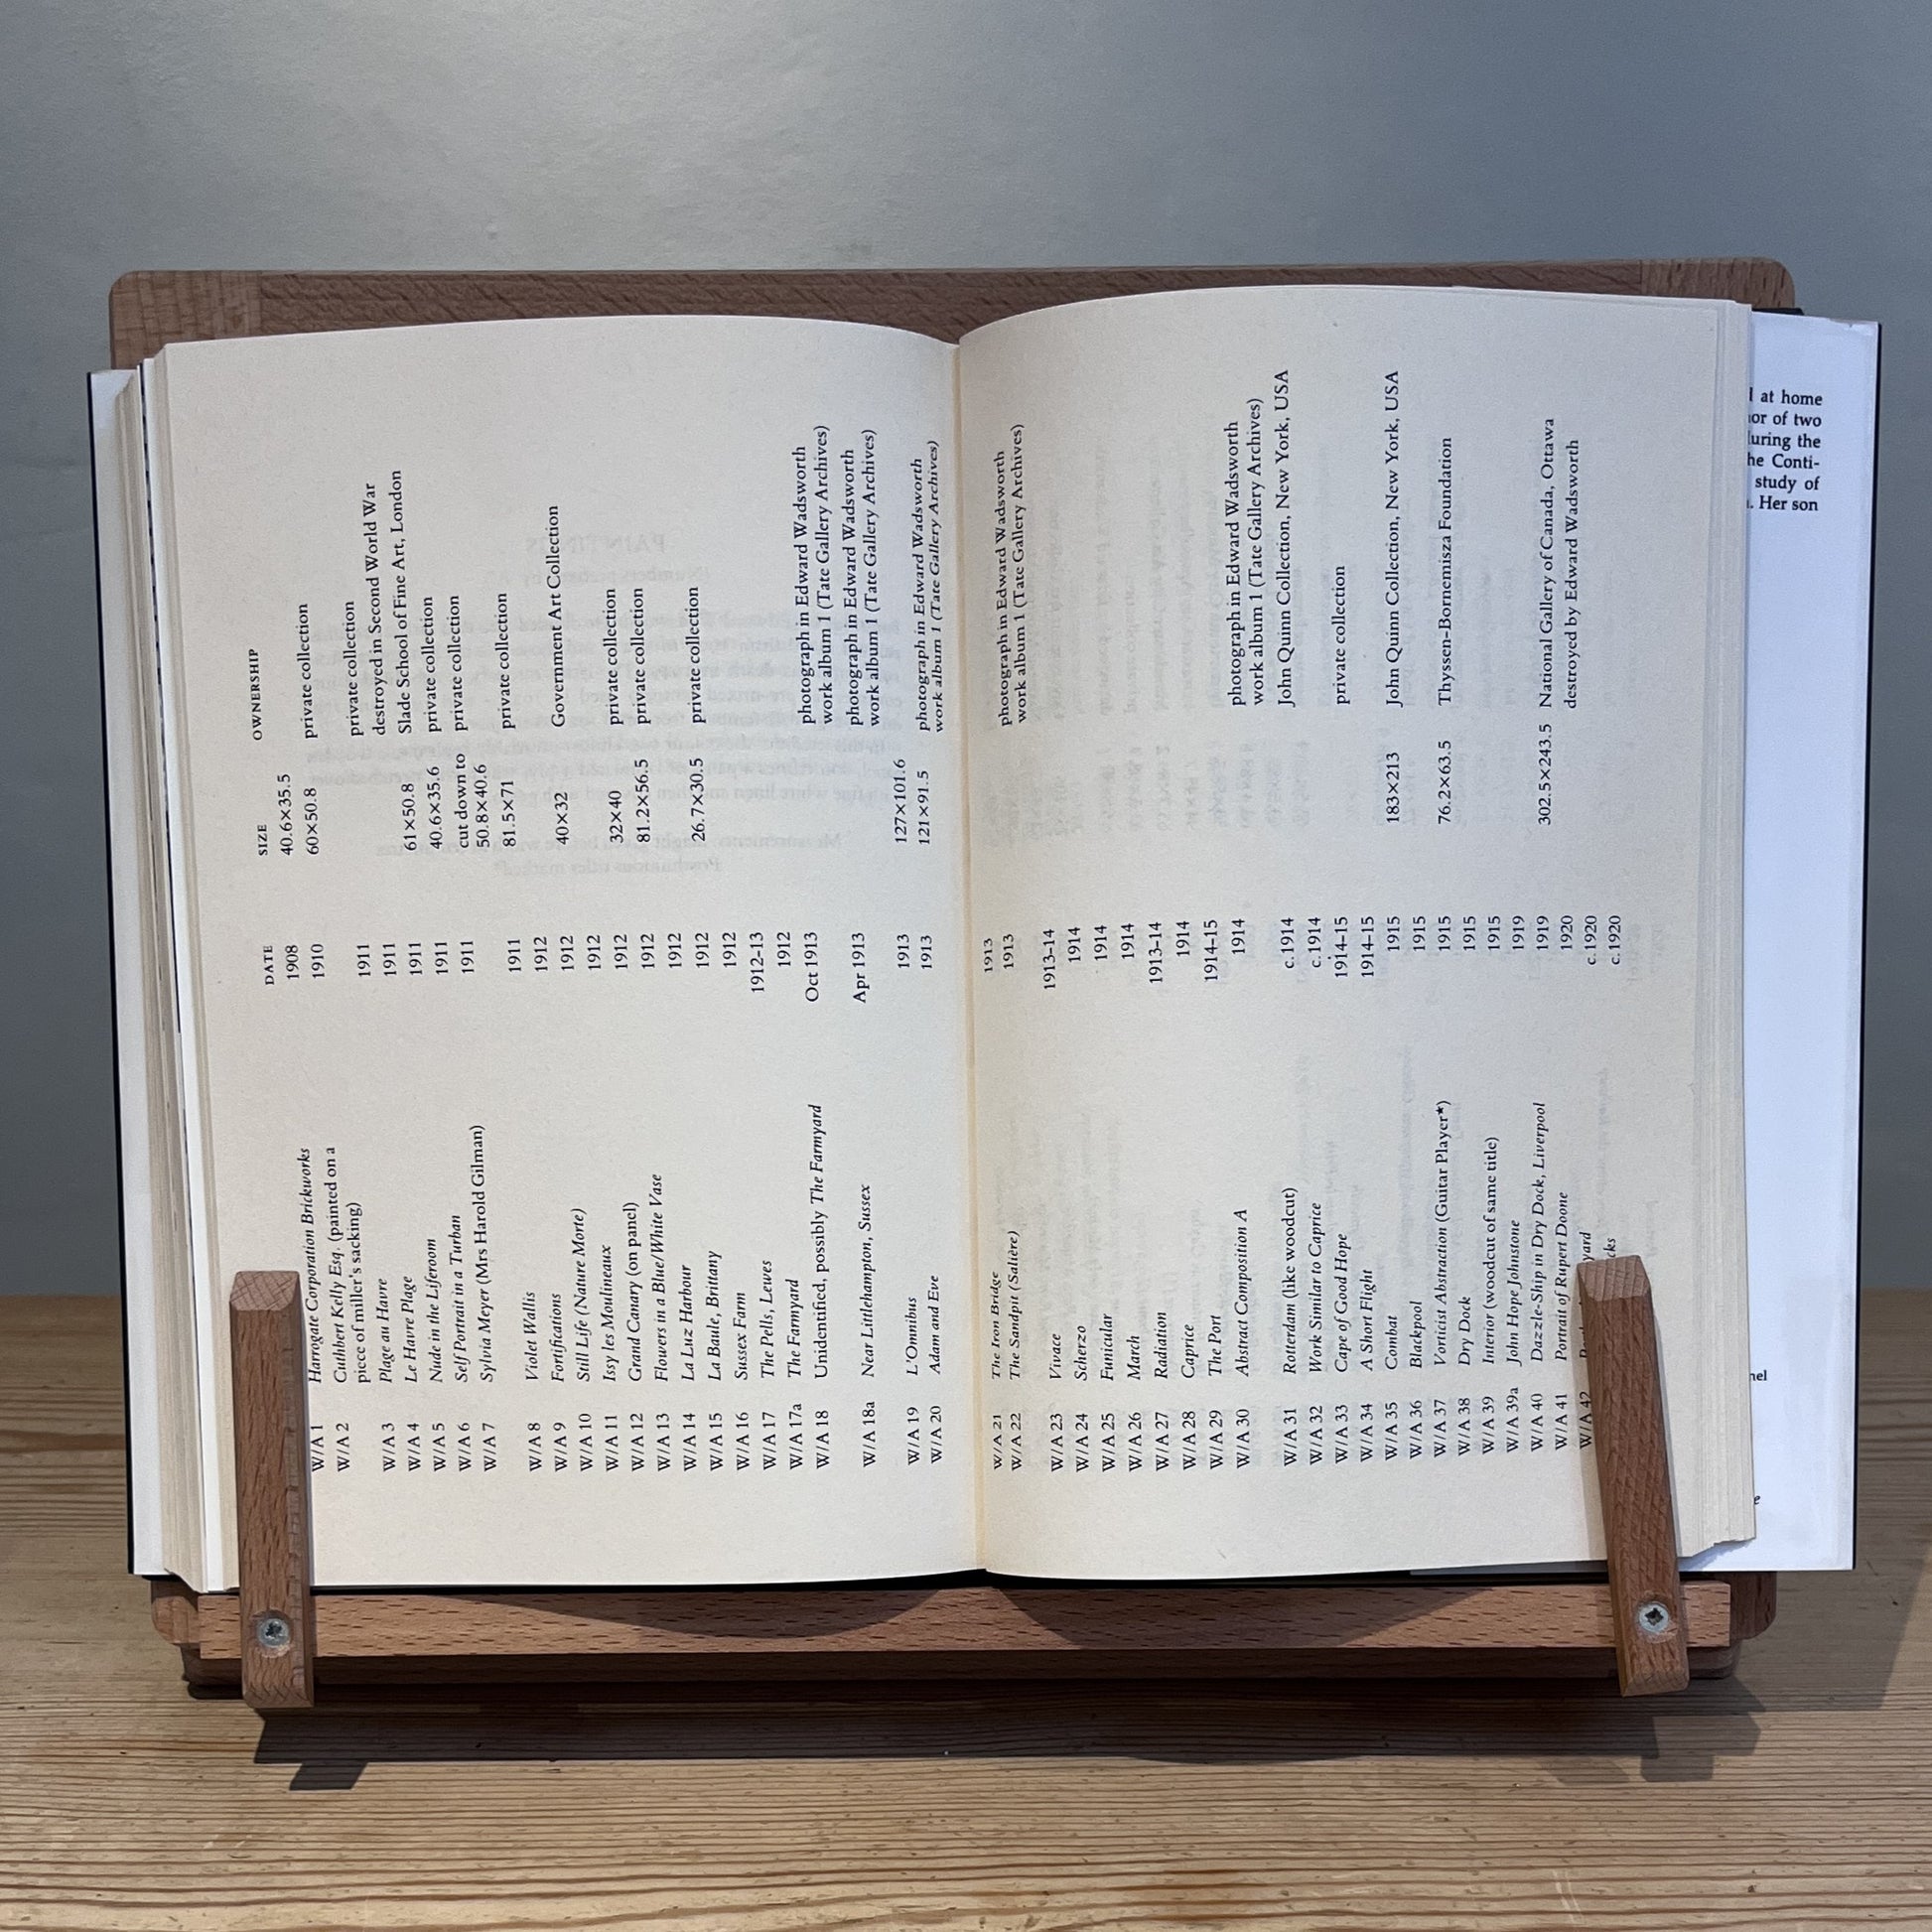 DATE SIZE OWNERSHIP
W/A 1 Harrogate Corporation Brickworks 1908 40.6×35.5
W/A 2 Cuthbert Kelly Esq. (painted on a 1910 60×50.8 private collection
piece of miller's sacking)
W/A 3 Plage au Havre 1911 private collection
W/A 4 Le Havre Plage 1911 destroyed in Second World War
W/A 5 Nude in the Liferoom 1911 61×50.8 Slade School of Fine Art, London
W/A 6 Self Portrait in a Turban 1911 40.6×35.6 private collection
W/A 7 Sylvia Meyer (Mrs Harold Gilman) 1911 cut down to private collection
50.8×40.6
W/A 8 Violet Wallis 1911 81.5×71 private collection
W/A 9 Fortifications 1912
W/A 10 Still Life (Nature Morte) 1912 40×32 Government Art Collection
W/A 11 Issy les Moulineaux 1912
W/A 12 Grand Canary (on panel) 1912 32×40 private collection
W/A 13 Flowers in a Blue/White Vase 1912 81.2×56.5 private collection
W/A 14 La Luz Harbour 1912
W/A 15 La Baule, Brittany 1912 26.7×30.5 private collection
W/A 16 Sussex Farm 1912
W/A 17 The Pells, Lewes 1912–13
W/A 17a The Farmyard 1912
W/A 18 Unidentified, possibly The Farmyard Oct 1913 photograph in Edward Wadsworth
work album 1 (Tate Gallery Archives)
W/A 18a Near Littlehampton, Sussex Apr 1913 photograph in Edward Wadsworth
work album 1 (Tate Gallery Archives)
W/A 19 L'Omnibus 1913 127×101.6
W/A 20 Adam and Eve 1913 121×91.5 photograph in Edward Wadsworth
work album 1 (Tate Gallery Archives)
W/A 21 The Iron Bridge 1913
W/A 22 The Sandpit (Salière) 1913 photograph in Edward Wadsworth
work album 1 (Tate Gallery Archives)
W/A 23 Vivace 1913–14
W/A 24 Scherzo 1914
W/A 25 Funicular 1914
W/A 26 March 1914
W/A 27 Radiation 1913–14
W/A 28 Caprice 1914
W/A 29 The Port 1914–15
W/A 30 Abstract Composition A 1914 photograph in Edward Wadsworth
work album 1 (Tate Gallery Archives)
W/A 31 Rotterdam (like woodcut) c.1914 John Quinn Collection, New York, USA
W/A 32 Work Similar to Caprice c.1914
W/A 33 Cape of Good Hope 1914–15 private collection
W/A 34 A Short Flight 1914–15
W/A 35 Combat 1915 183×213 John Quinn Collection, New York, USA
W/A 36 Blackpool 1915
W/A 37 Vorticist Abstraction (Guitar Player*) 1915 76.2×63.5 Thyssen-Bornemisza Foundation
W/A 38 Dry Dock 1915
W/A 39 Interior (woodcut of same title) 1915
W/A 39a John Hope Johnstone 1919
W/A 40 Dazzle-Ship in Dry Dock, Liverpool 1919 302.5×243.5 National Gallery of Canada, Ottawa
W/A 41 Portrait of Rupert Doone 1920 destroyed by Edward Wadsworth
W/A 42 c.1920
c.1920
at home
of two
the
Conti-
study of
Her son